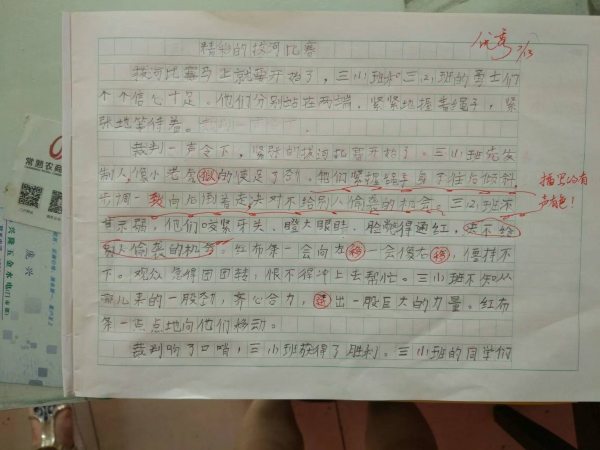 精彩的拔河比赛
优秀 7/13
拔河比赛马上就要开始了，三(1)班和三(2)班的勇士们
个个信心十足。他们分别站在两端，紧紧地握着绳子，紧
张地等待着。
裁判一声令下，紧张的拔河比赛开始了。三(1)班先发
制人像小老虎似的使足了劲。他们紧握绳子身子往后倾斜，
步调一致向后倒着走决对不给别人偷袭的机会。三(2)班不
甘示弱，他们咬紧牙关，瞪大眼睛，脸憋得通红，决不给
别人偷袭的机会。红布条一会向左移一会像右移，僵持不
下。观众急得团团转，恨不得冲上去帮忙。三(1)班不知从
哪儿来的一股劲，齐心合力，迸出一股巨大的力量。红布
条一点点地向他们移动。
裁判吹了口哨，三(1)班获得了胜利。三(1)班的同学们
描写的有
声有色！
常熟农商
兴隆五金水电
庞兴